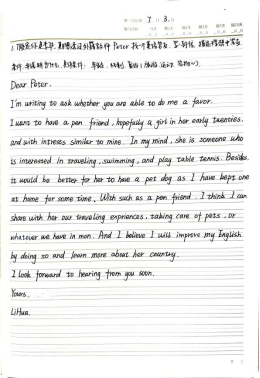 7 3
Dear Peter.
I'm writing to ask whether you are able to do me a favor.
I want to have a pen friend, hopefully a girl in her early twenties,
and with intress similar to mine. In my mind, she is someone who
is interested in traveling, swimming, and play table tennis. Besides,
it would be better for her to have a pet dog as I have kept one
at home for some time. With such as a pen friend. I think I can
share with her our traveling expriances, taking care of pets. or
whatever we have in mon. And I believe I will improve my English
by doing so and learn more about her country.
I look forward to hearing from you soon.
Yours.
LiHua.